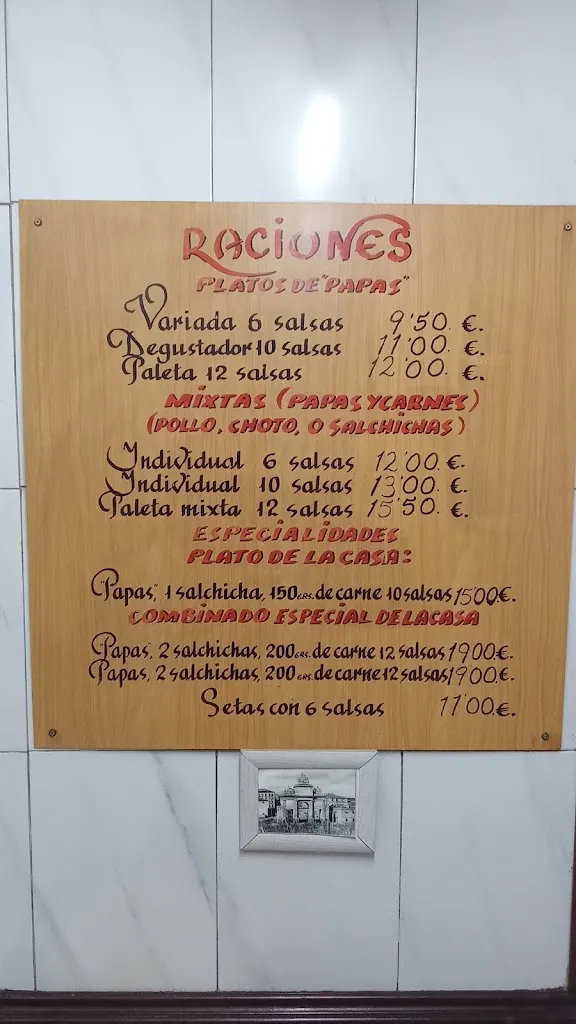 RACIONES
PLATOS DE "PAPAS"
Variada 6 salsas 9'50. €.
Degustador 10 salsas 11'00. €.
Paleta 12 salsas 12'00. €.
MIXTAS (PAPAS Y CARNES)
(POLLO, CHOTO, O SALCHICHAS)
Individual 6 salsas 12'00. €.
Individual 10 salsas 13'00. €.
Paleta mixta 12 salsas 15'50. €.
ESPECIALIDADES
PLATO DE LA CASA:
"Papas", 1 salchicha, 150 GRS. de carne 10 salsas 15'00€.
COMBINADO ESPECIAL DE LA CASA
"Papas", 2 salchichas, 200 GRS. de carne 12 salsas 19'00€.
Papas, 2 salchichas, 200 GRS. de carne 12 salsas 19'00€.
Setas con 6 salsas 11'00€.